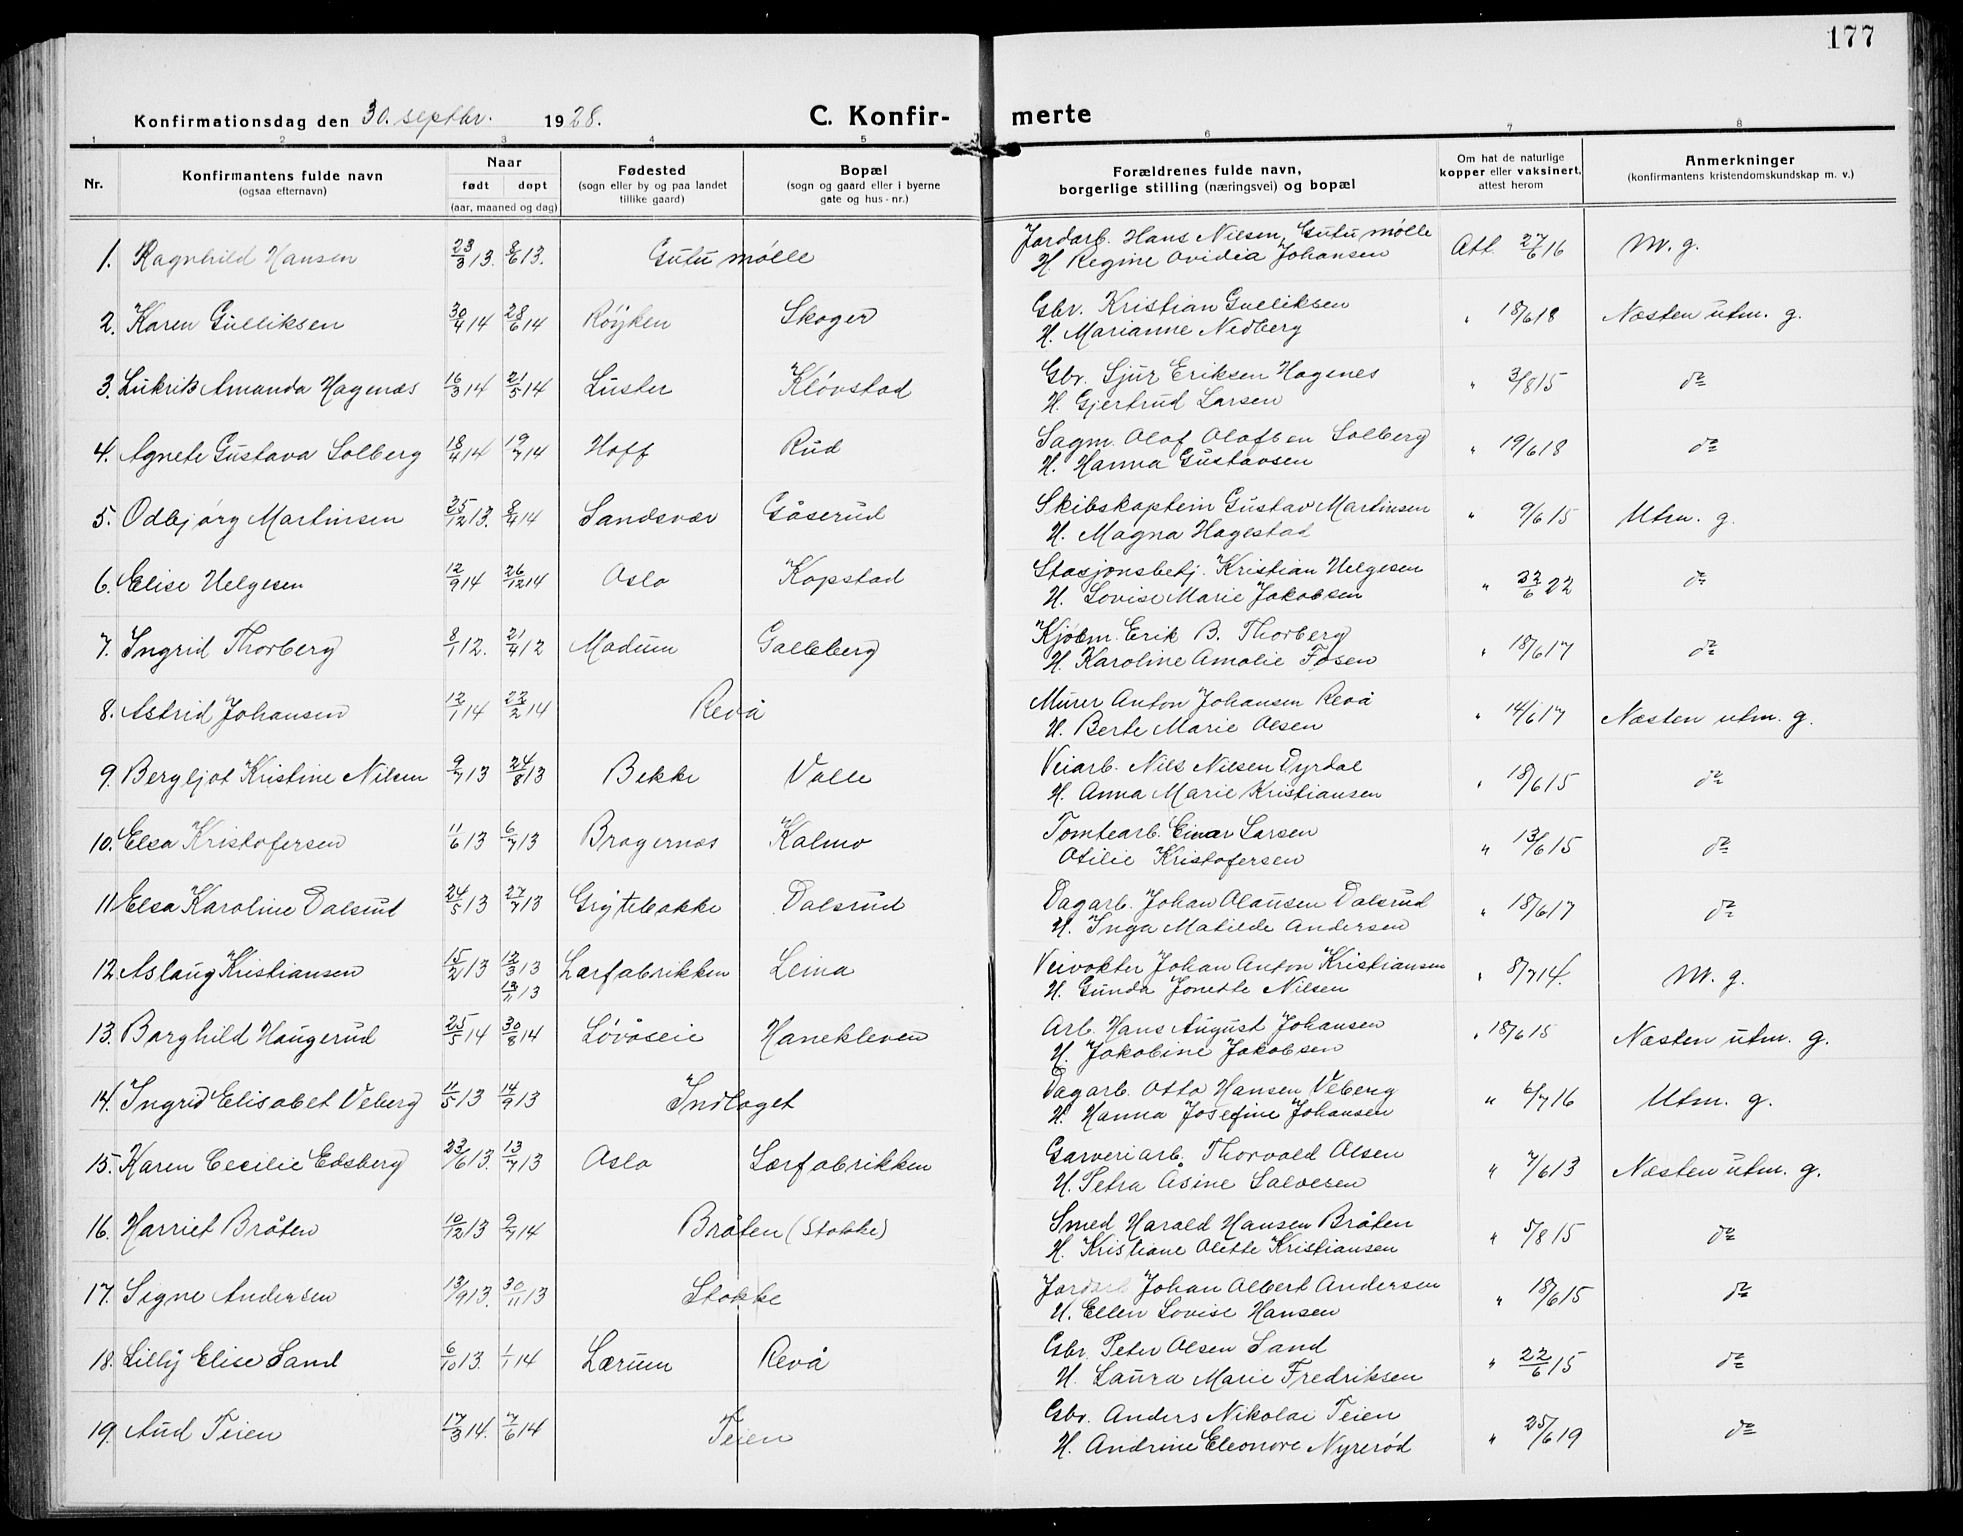 177
Konfirmationsdag den 30. septbr. 1928.
C. Konfirmerte
1 2 3 4 5 6 7 8
Nr.
Konfirmantens fulde navn
(ogsaa efternavn)
Naar
født døpt
(aar, maaned og dag)
Fødested
(sogn eller by og paa landet
tillike gaard)
Bopæl
(sogn og gaard eller i byerne
gate og hus-nr.)
Forældrenes fulde navn,
borgerlige stilling (næringsvei) og bopæl
Om hat de naturlige
kopper eller vaksinert,
attest herom
Anmerkninger
(konfirmantens kristendomskundskap m. v.)
1. Ragnhild Hansen 23/3 13. 8/6 13. Gutu mølle Jordarb. Hans Nilsen, Gutu mølle Att. 27/6 16 M. g.
H. Regine Ovidia Johansen
2. Karen Gulliksen 30/4 14 28/6 14 Røyken Skoger Gbr. Kristian Gulliksen " 18/6 18 Næsten utm. g.
H. Marianne Nedberg
3. Lukris Amanda Hagenæs 16/3 14 21/5 14 Luster Kløvstad Gbr. Sjur Eriksen Hagenes " 3/8 15 do
H. Gjertrud Larsen
4. Agnete Gustava Solberg 18/4 14 19/7 14 Hoff Rud Sagm. Olaf Olafsen Solberg " 19/6 18 do
H. Hanna Gustavsen
5. Odbjørg Martinsen 25/12 13. 8/4 14 Sandsvær Gåserud Skibskaptein Gustav Martinsen " 9/6 15 Utm. g.
H. Magna Hagestad
6. Elise Helgesen 12/9 14 26/12 14 Oslo Kopstad Stasjonsbetj. Kristian Helgesen " 22/6 22 do
H. Lovise Marie Jakobsen
7. Ingrid Thorberg 8/1 12. 21/4 12 Modum Galleberg Kjøbm. Erik B. Thorberg " 18/6 17 do
H. Karoline Amalie Fosen
8. Astrid Johansen 12/1 14 22/2 14 Revå Murer Anton Johansen Revå " 14/6 17 Næsten utm. g.
H. Berte Marie Olsen
9. Bergljot Kristine Nilsen 9/7 13 24/8 13 Bekke Valle Veiarb. Nils Nilsen Dyrdal " 18/6 15 do
H. Anna Marie Kristiansen
10. Elsa Kristofersen 11/6 13 6/7 13 Bragernæs Kalmo Tomtearb. Einar Larsen " 13/6 15 do
Otilie Kristofersen
11. Elsa Karoline Dalsrud 24/5 13 27/7 13 Grytebakke Dalsrud Dagarb. Johan Olausen Dalsrud " 18/6 17 do
H. Inga Matilde Andersen
12. Aslaug Kristiansen 15/2 13 12/3 13 Lærfabrikken Leina Veivokter Johan Anton Kristiansen " 8/7 14. M. g.
13/11 13 H. Gunda Jonette Nilsen
13. Borghild Haugerud 25/5 14 30/8 14 Løvåseie Hanekleven Arb. Hans August Johansen " 18/6 15 Næsten utm. g.
H. Jakobine Jakobsen
14. Ingrid Elisabet Veberg 11/5 13 14/9 13 Indlaget Dagarb. Otto Hansen Veberg " 6/7 16 Utm. g.
H. Hanna Josefine Johansen
15. Karen Cecilie Edsberg 23/6 13. 13/7 13 Oslo Lærfabrikken Garveriarb. Thorvald Olsen " 7/6 13 Næsten utm. g.
H. Petra Åsine Salvesen
16. Harriet Bråten 10/12 13 9/7 14 Bråten (Stokke) Smed Harald Hansen Bråten " 5/8 15 do
H. Kristiane Olette Kristiansen
17. Signe Andersen 13/9 13. 30/11 13 Stokke Jordarb. Johan Albert Andersen " 18/6 15 do
H. Ellen Lovise Hansen
18. Lilly Elise Sand 6/10 13. 1/1 14 Lærum Revå Gbr. Peter Olsen Sand " 22/6 15 do
H. Laura Marie Fredriksen
19. Aud Teien 17/3 14. 7/6 14 Teien Gbr. Anders Nikolai Teien " 25/6 19 do
H. Andrine Eleonore Nyrerød